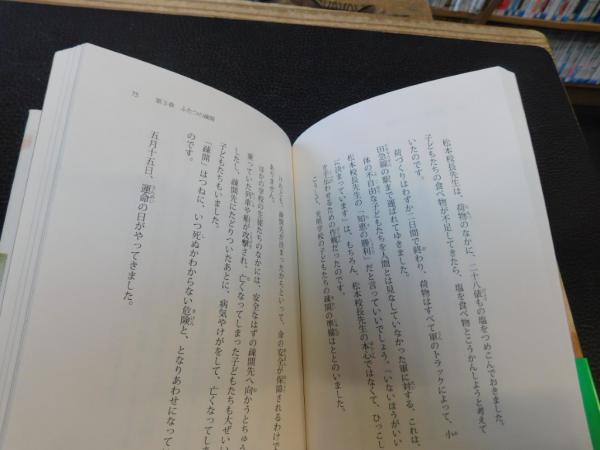 松本校長先生は、荷物のなかに、二十八俵もの塩をつめこんでおきました。
子どもたちの食べ物が不足してきたら、塩を食べ物とこうかんしようと考えて
いたのです。
荷づくりはわずか二日間で終わり、荷物はすべて軍のトラックによって、小
田急線の駅まで運ばれてゆきました。
体の不自由な子どもたちを人間とは見なしていなかった軍に対する、これは、
松本校長先生の「知恵の勝利」だと言っていいでしょう。「いないほうがいい
に決まっています」は、もちろん、松本校長先生の本心ではなくて、ひっこし
を手伝わせるための作戦だったのです。
こうして、光明学校の子どもたちの疎開の準備はととのいました。
75 第3章 ふたつの疎開
けれども、疎開先が決まったからといって、命の安全が保障されるわけで
ありません。
ほかの学校の生徒たちのなかには、安全なはずの疎開先へ向かうとちゅう
乗っていた列車や船が攻撃され、亡くなってしまった子どもたちも大ぜい
したし、疎開先にたどりついたあとに、病気やけがをして、亡くなってしま
子どもたちもいました。
「疎開」はつねに、いつ死ぬかわからない危険と、となりあわせになって
のです。
五月十五日、運命の日がやってきました。